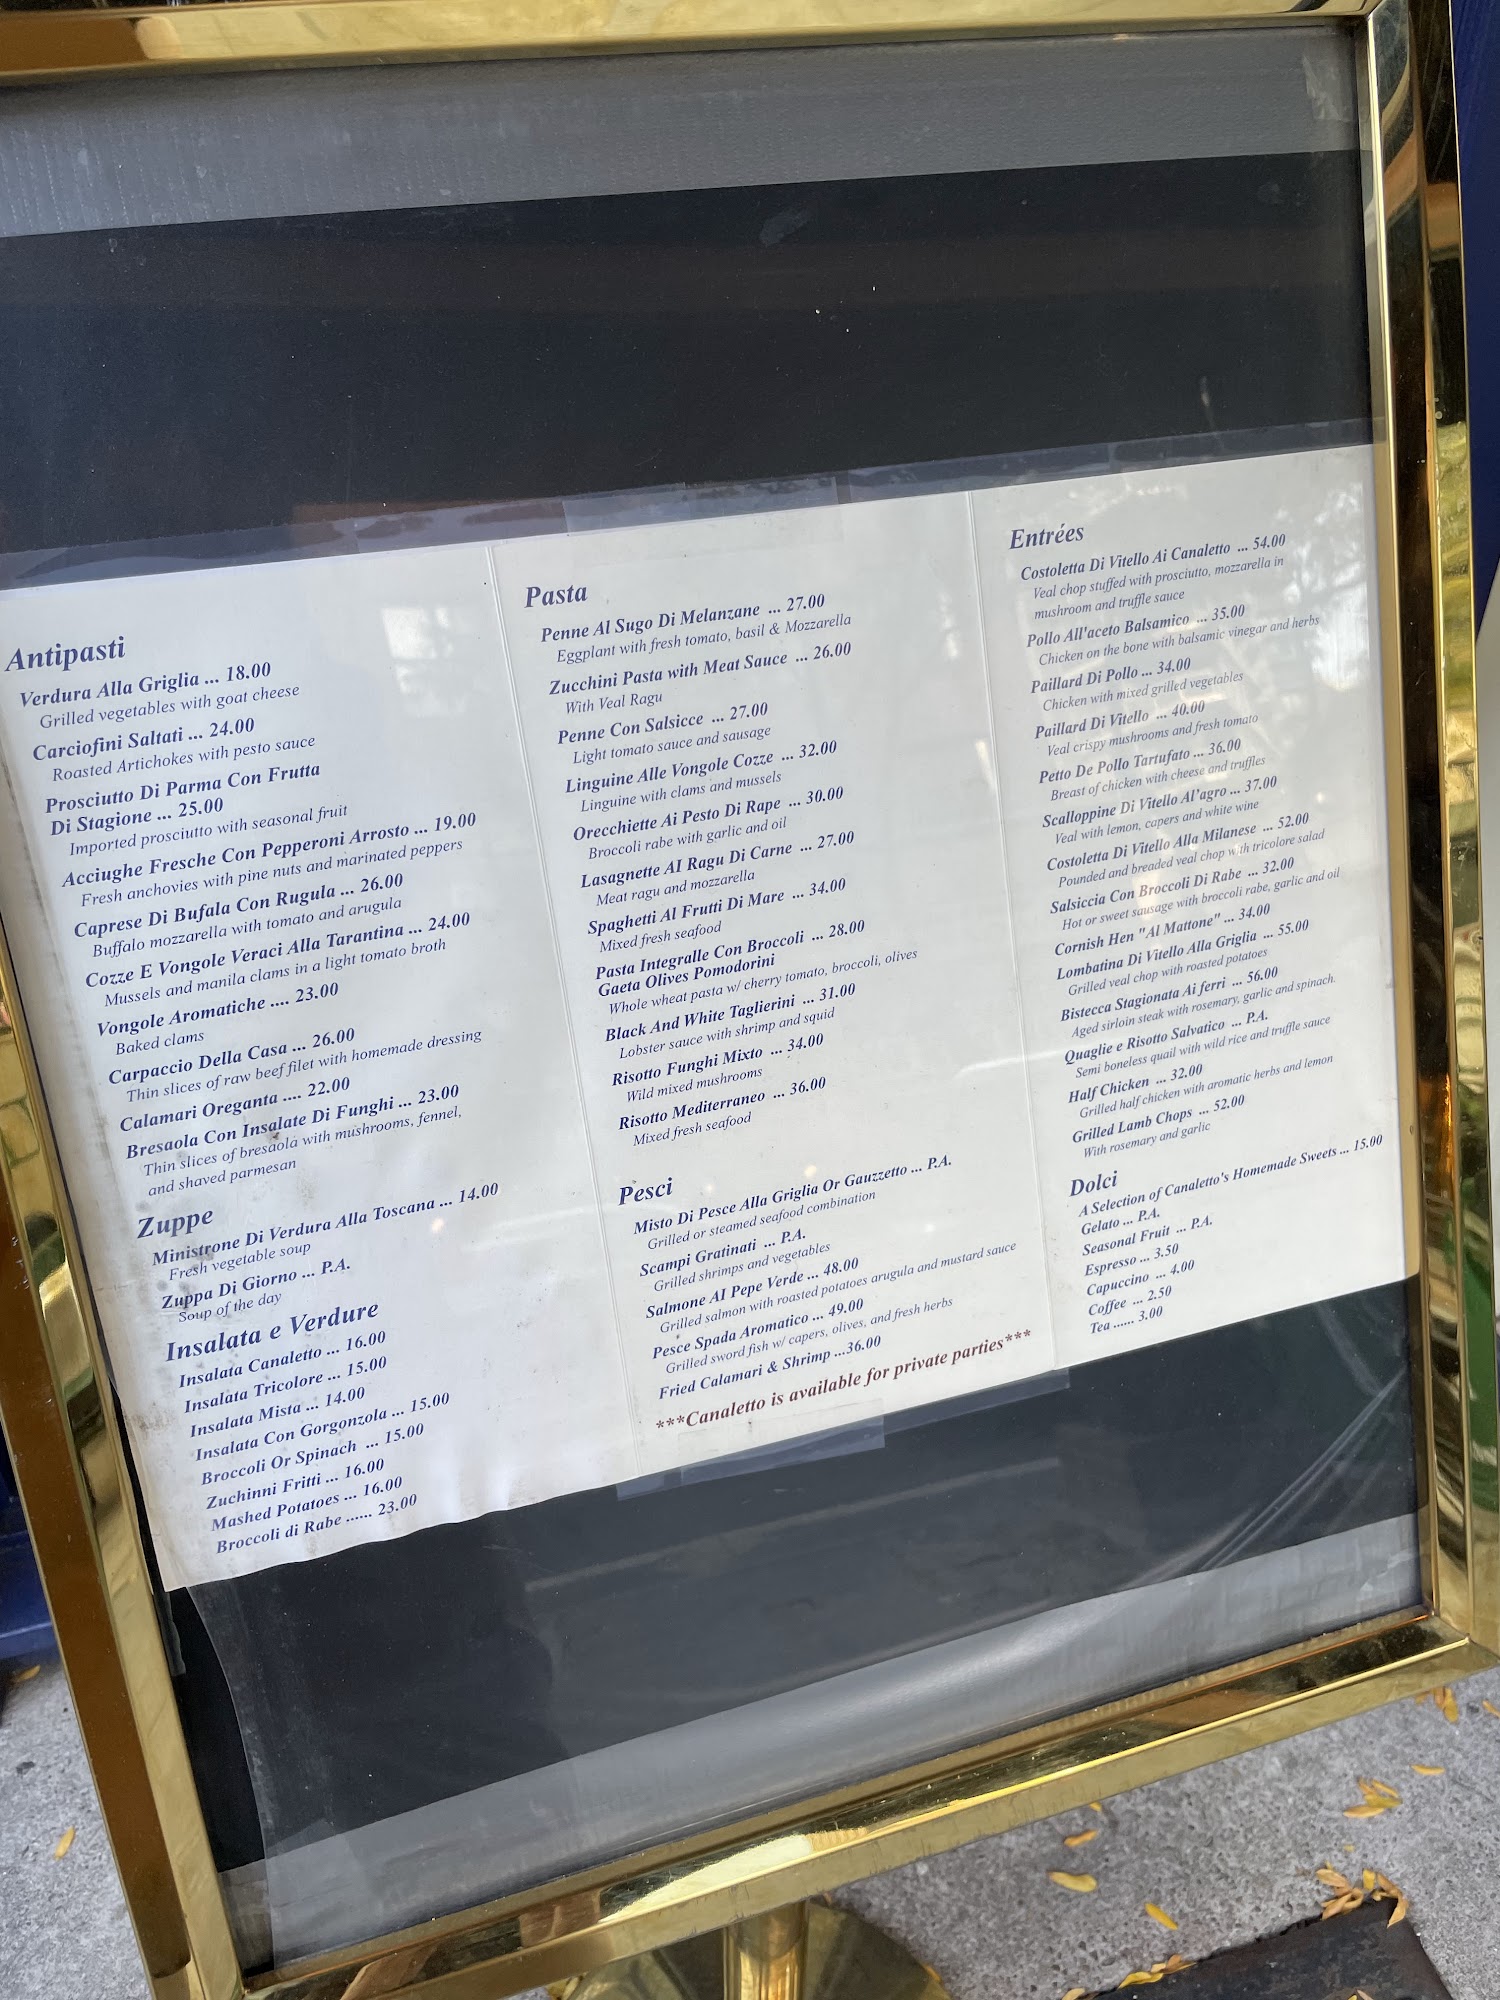 Antipasti
Verdura Alla Griglia ... 18.00
Grilled vegetables with goat cheese
Carciofini Saltati ... 24.00
Roasted Artichokes with pesto sauce
Prosciutto Di Parma Con Frutta
Di Stagione ... 25.00
Imported prosciutto with seasonal fruit
Acciughe Fresche Con Pepperoni Arrosto ... 19.00
Fresh anchovies with pine nuts and marinated peppers
Caprese Di Bufala Con Rugula ... 26.00
Buffalo mozzarella with tomato and arugula
Cozze E Vongole Veraci Alla Tarantina ... 24.00
Mussels and manila clams in a light tomato broth
Vongole Aromatiche .... 23.00
Baked clams
Carpaccio Della Casa ... 26.00
Thin slices of raw beef filet with homemade dressing
Calamari Oreganta .... 22.00
Bresaola Con Insalate Di Funghi ... 23.00
Thin slices of bresaola with mushrooms, fennel,
and shaved parmesan
Zuppe
Ministrone Di Verdura Alla Toscana ... 14.00
Fresh vegetable soup
Zuppa Di Giorno ... P.A.
Soup of the day
Insalata e Verdure
Insalata Canaletto ... 16.00
Insalata Tricolore ... 15.00
Insalata Mista ... 14.00
Insalata Con Gorgonzola ... 15.00
Broccoli Or Spinach ... 15.00
Zuchinni Fritti ... 16.00
Mashed Potatoes ... 16.00
Broccoli di Rabe ...... 23.00
Pasta
Penne Al Sugo Di Melanzane ... 27.00
Eggplant with fresh tomato, basil & Mozzarella
Zucchini Pasta with Meat Sauce ... 26.00
With Veal Ragu
Penne Con Salsicce ... 27.00
Light tomato sauce and sausage
Linguine Alle Vongole Cozze ... 32.00
Linguine with clams and mussels
Orecchiette Ai Pesto Di Rape ... 30.00
Broccoli rabe with garlic and oil
Lasagnette AI Ragu Di Carne ... 27.00
Meat ragu and mozzarella
Spaghetti Al Frutti Di Mare ... 34.00
Mixed fresh seafood
Pasta Integralle Con Broccoli ... 28.00
Gaeta Olives Pomodorini
Whole wheat pasta w/ cherry tomato, broccoli, olives
Black And White Taglierini ... 31.00
Lobster sauce with shrimp and squid
Risotto Funghi Mixto ... 34.00
Wild mixed mushrooms
Risotto Mediterraneo ... 36.00
Mixed fresh seafood
Pesci
Misto Di Pesce Alla Griglia Or Gauzzetto ... P.A.
Grilled or steamed seafood combination
Scampi Gratinati ... P.A.
Grilled shrimps and vegetables
Salmone AI Pepe Verde ... 48.00
Grilled salmon with roasted potatoes arugula and mustard sauce
Pesce Spada Aromatico ... 49.00
Grilled sword fish w/ capers, olives, and fresh herbs
Fried Calamari & Shrimp ...36.00
***Canaletto is available for private parties***
Entrées
Costoletta Di Vitello Ai Canaletto ... 54.00
Veal chop stuffed with prosciutto, mozzarella in
mushroom and truffle sauce
Pollo All'aceto Balsamico ... 35.00
Chicken on the bone with balsamic vinegar and herbs
Paillard Di Pollo ... 34.00
Chicken with mixed grilled vegetables
Paillard Di Vitello ... 40.00
Veal crispy mushrooms and fresh tomato
Petto De Pollo Tartufato ... 36.00
Breast of chicken with cheese and truffles
Scalloppine Di Vitello Al'agro ... 37.00
Veal with lemon, capers and white wine
Costoletta Di Vitello Alla Milanese ... 52.00
Pounded and breaded veal chop with tricolore salad
Salsiccia Con Broccoli Di Rabe ... 32.00
Hot or sweet sausage with broccoli rabe, garlic and oil
Cornish Hen "Al Mattone" ... 34.00
Lombatina Di Vitello Alla Griglia ... 55.00
Grilled veal chop with roasted potatoes
Bistecca Stagionata Ai ferri ... 56.00
Aged sirloin steak with rosemary, garlic and spinach.
Quaglie e Risotto Salvatico ... P.A.
Semi boneless quail with wild rice and truffle sauce
Half Chicken ... 32.00
Grilled half chicken with aromatic herbs and lemon
Grilled Lamb Chops ... 52.00
With rosemary and garlic
Dolci
A Selection of Canaletto's Homemade Sweets ... 15.00
Gelato ... P.A.
Seasonal Fruit ... P.A.
Espresso ... 3.50
Capuccino ... 4.00
Coffee ... 2.50
Tea ...... 3.00